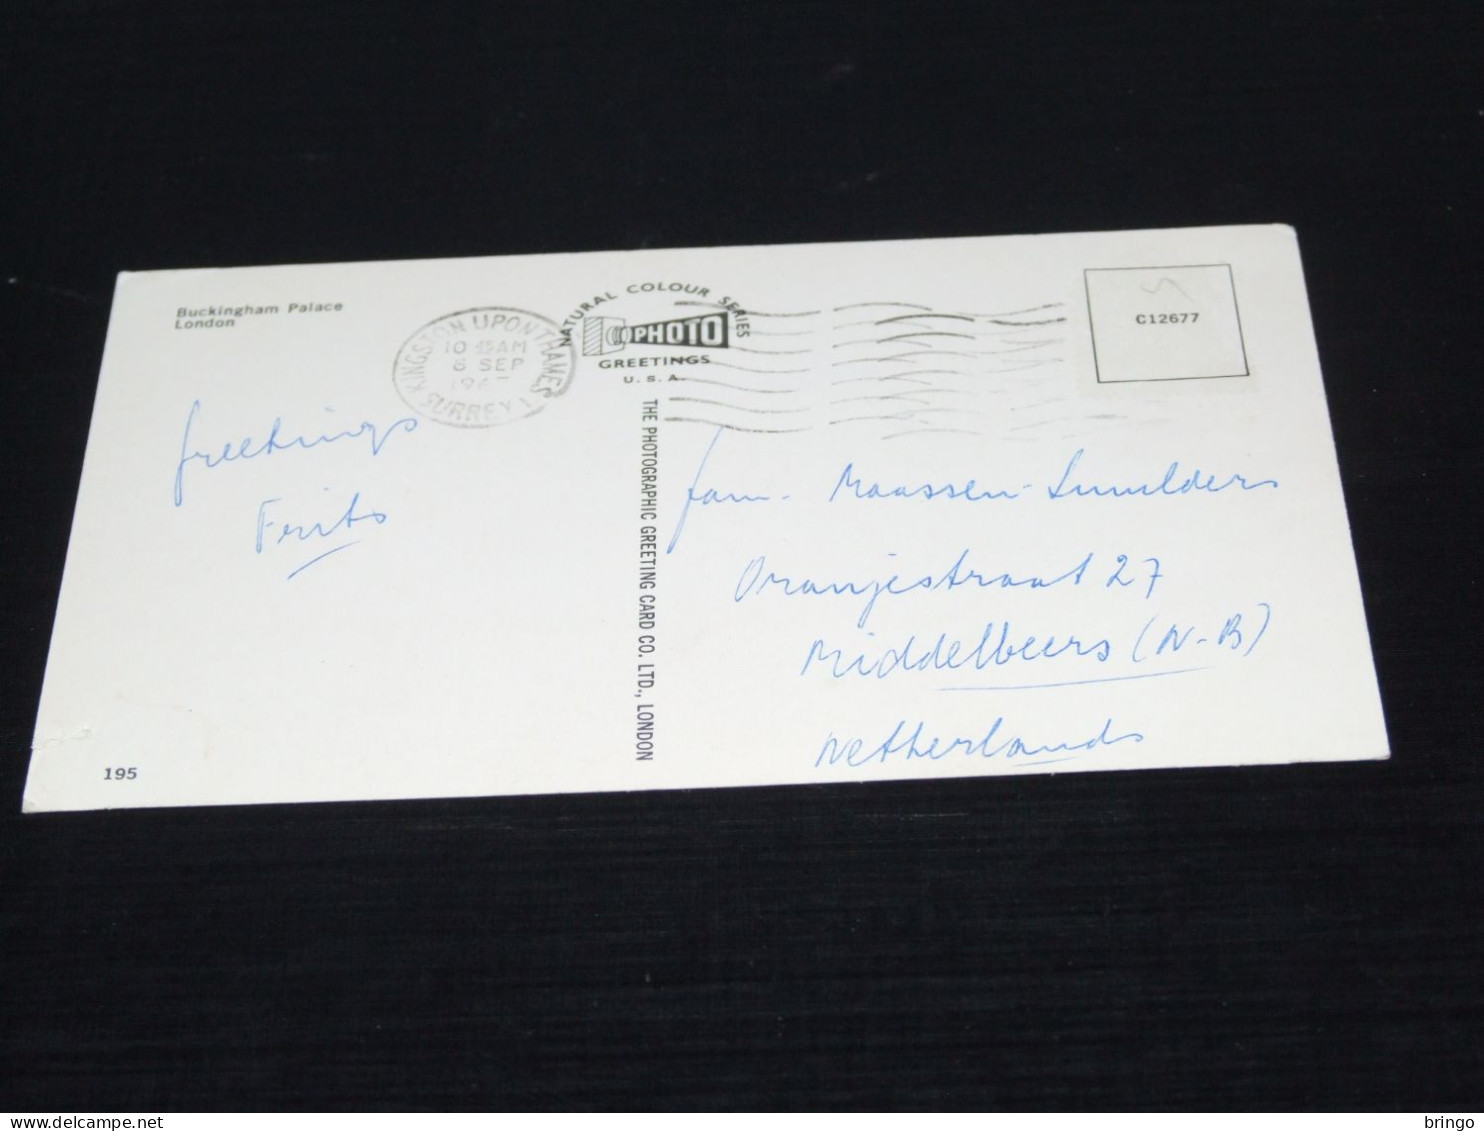 Buckingham Palace
London
KINGSTON UPON THAMES
10 AM
SEP
SURREY
NATURAL COLOUR SERIES
PHOTO
GREETINGS
U.S.A.
C12677
THE PHOTOGRAPHIC GREETING CARD CO. LTD., LONDON
greetings
Frits
fam. Maassen-Smulders
Oranjestraat 27
Middelbeers (N-B)
Netherlands
195
bringo